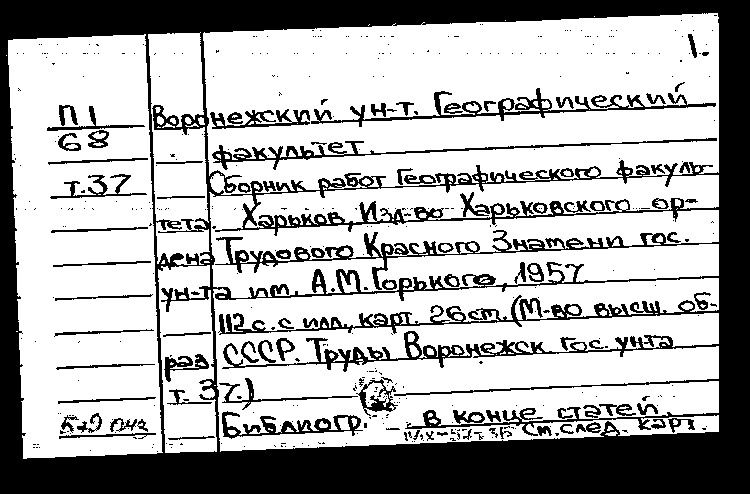 1.
П 1 Воронежский ун-т. Географический
68 факультет.
т.37 Сборник работ Географического факуль-
тета. Харьков, Изд-во Харьковского ор-
дена Трудового Красного Знамени гос.
ун-та им. А.М.Горького, 1957
112 с. с илл., карт. 26см. (М-во высш. об-
раз. СССР. Труды Воронежск гос. унта
т. 37.)
Библиогр. в конце статей.
См. след. карт.